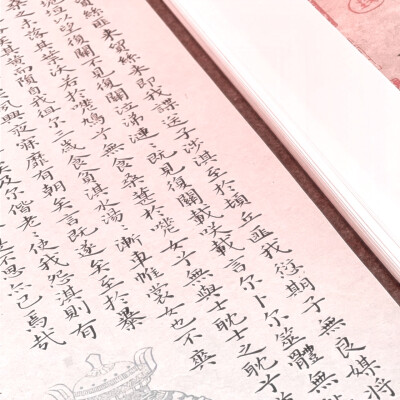 貿絲匪來貿絲來即我謀送子涉淇至於頓丘匪我愆期子無良媒將
垝垣以望復關不見復關泣涕漣〻既見復關載咲載言尔卜尔筮體無
之未落其葉沃若於嗟鳩兮無食桑葚於嗟女兮無與士耽士之耽兮
矣其黃而隕自我徂尔三歲食貧淇水湯〻漸車帷裳女也不爽
夙興夜寐靡有朝矣言既遂矣至於暴
及尔偕老〻使我怨淇則有
是不思亦已焉哉